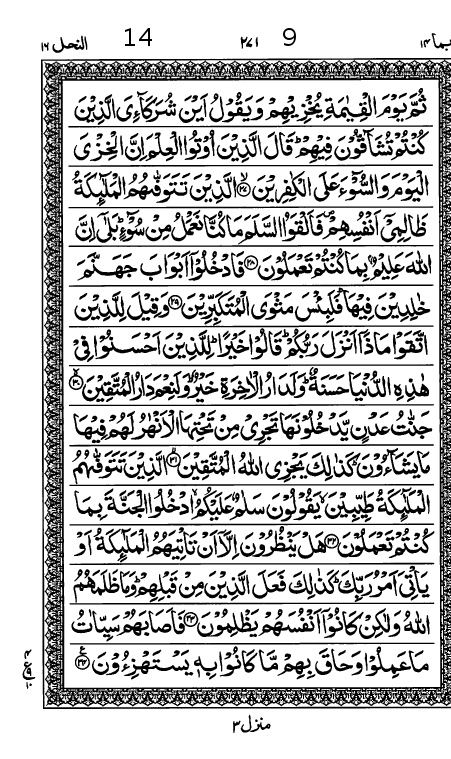 ربما ۱۴ 9 ۲۷۱ 14 النحل ۱۶
ثُمَّ یَوْمَ الْقِیٰمَةِ یُخْزِیْهِمْ وَ یَقُوْلُ اَیْنَ شُرَكَآءِیَ الَّذِیْنَ
كُنْتُمْ تُشَآقُّوْنَ فِیْهِمْ ؕ قَالَ الَّذِیْنَ اُوْتُوا الْعِلْمَ اِنَّ الْخِزْیَ
الْیَوْمَ وَ السُّوْٓءَ عَلَی الْكٰفِرِیْنَ ﴿۲۷﴾ الَّذِیْنَ تَتَوَفّٰىهُمُ الْمَلٰٓىِٕكَةُ
ظَالِمِیْۤ اَنْفُسِهِمْ ۪ فَاَلْقَوُا السَّلَمَ مَا كُنَّا نَعْمَلُ مِنْ سُوْٓءٍ ؕ بَلٰۤی اِنَّ
اللّٰهَ عَلِیْمٌۢ بِمَا كُنْتُمْ تَعْمَلُوْنَ ﴿۲۸﴾ فَادْخُلُوْۤا اَبْوَابَ جَهَنَّمَ
خٰلِدِیْنَ فِیْهَا ؕ فَلَبِئْسَ مَثْوَی الْمُتَكَبِّرِیْنَ ﴿۲۹﴾ وَ قِیْلَ لِلَّذِیْنَ
اتَّقَوْا مَاذَاۤ اَنْزَلَ رَبُّكُمْ ؕ قَالُوْا خَیْرًا ؕ لِلَّذِیْنَ اَحْسَنُوْا فِیْ
هٰذِهِ الدُّنْیَا حَسَنَةٌ ؕ وَ لَدَارُ الْاٰخِرَةِ خَیْرٌ ؕ وَ لَنِعْمَ دَارُ الْمُتَّقِیْنَ ﴿۳۰﴾
جَنّٰتُ عَدْنٍ یَّدْخُلُوْنَهَا تَجْرِیْ مِنْ تَحْتِهَا الْاَنْهٰرُ لَهُمْ فِیْهَا
مَا یَشَآءُوْنَ ؕ كَذٰلِكَ یَجْزِی اللّٰهُ الْمُتَّقِیْنَ ﴿۳۱﴾ الَّذِیْنَ تَتَوَفّٰىهُمُ
الْمَلٰٓىِٕكَةُ طَیِّبِیْنَ ۙ یَقُوْلُوْنَ سَلٰمٌ عَلَیْكُمُ ۙ ادْخُلُوا الْجَنَّةَ بِمَا
كُنْتُمْ تَعْمَلُوْنَ ﴿۳۲﴾ هَلْ یَنْظُرُوْنَ اِلَّاۤ اَنْ تَاْتِیَهُمُ الْمَلٰٓىِٕكَةُ اَوْ
یَاْتِیَ اَمْرُ رَبِّكَ ؕ كَذٰلِكَ فَعَلَ الَّذِیْنَ مِنْ قَبْلِهِمْ ؕ وَ مَا ظَلَمَهُمُ
اللّٰهُ وَ لٰكِنْ كَانُوْۤا اَنْفُسَهُمْ یَظْلِمُوْنَ ﴿۳۳﴾ فَاَصَابَهُمْ سَیِّاٰتُ
مَا عَمِلُوْا وَ حَاقَ بِهِمْ مَّا كَانُوْا بِهٖ یَسْتَهْزِءُوْنَ ﴿۳۴﴾
۴
ع ۹
۱۰
منزل ۳